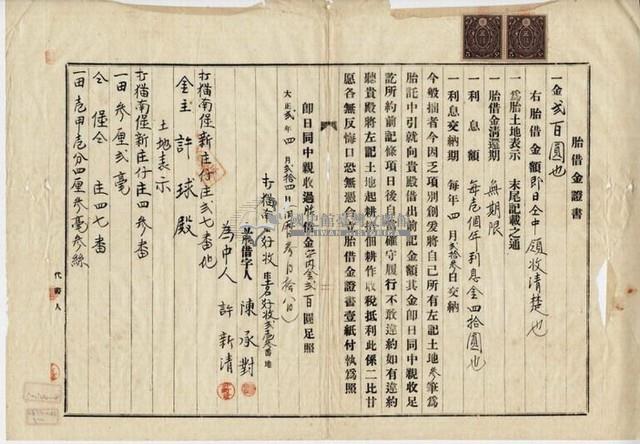 胎借金證書
一金貳百圓也
右胎借金額即日仝中領收清楚也
一為胎土地表示 末尾記載之通
一胎借金清還期 無期限
一利息額 每壱個年利息金四拾圓也
一利息交納期 每年四月貳拾參日交納
今般拙者今因乏項別創爰將自己所有左記土地參筆為
胎託中引就向貴殿借出前記金額其金即日同中親收足
訖所約前記條項日後自應確守履行不敢違約如有違約
聽貴殿將左記土地起耕招佃耕作收稅抵利此係二比甘
愿各無反悔口恐無憑立胎借金證書壹紙付執為照
即日同中親收過胎借金貳百圓足照
大正貳年四月貳拾四日
打猫南堡好收庄
立胎借字人 陳承對
為中人 許新清
打猫南堡新庄仔庄貳七番地
金主 許球殿
土地表示
打猫南堡新庄仔庄四參番
一田參厘貳毫
仝堡仝庄四七番
一田壱甲壱分四厘參毫參絲
代書人